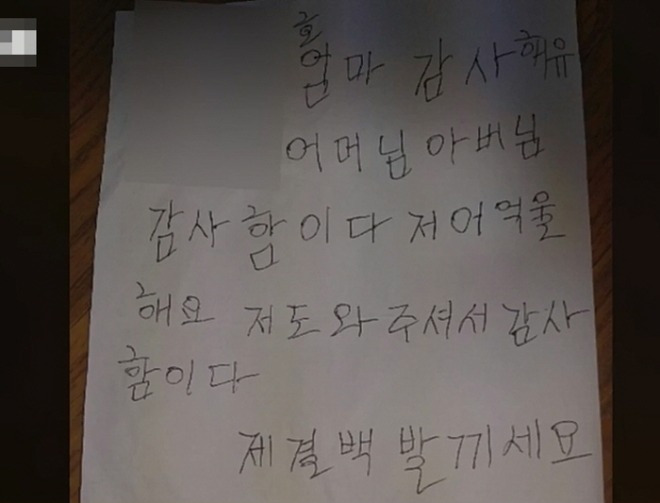 엄마 감사해유
어머님 아버님
감사함이다 저어억울
해요 저도와주셔서감사
함이다
제결백발끼세요